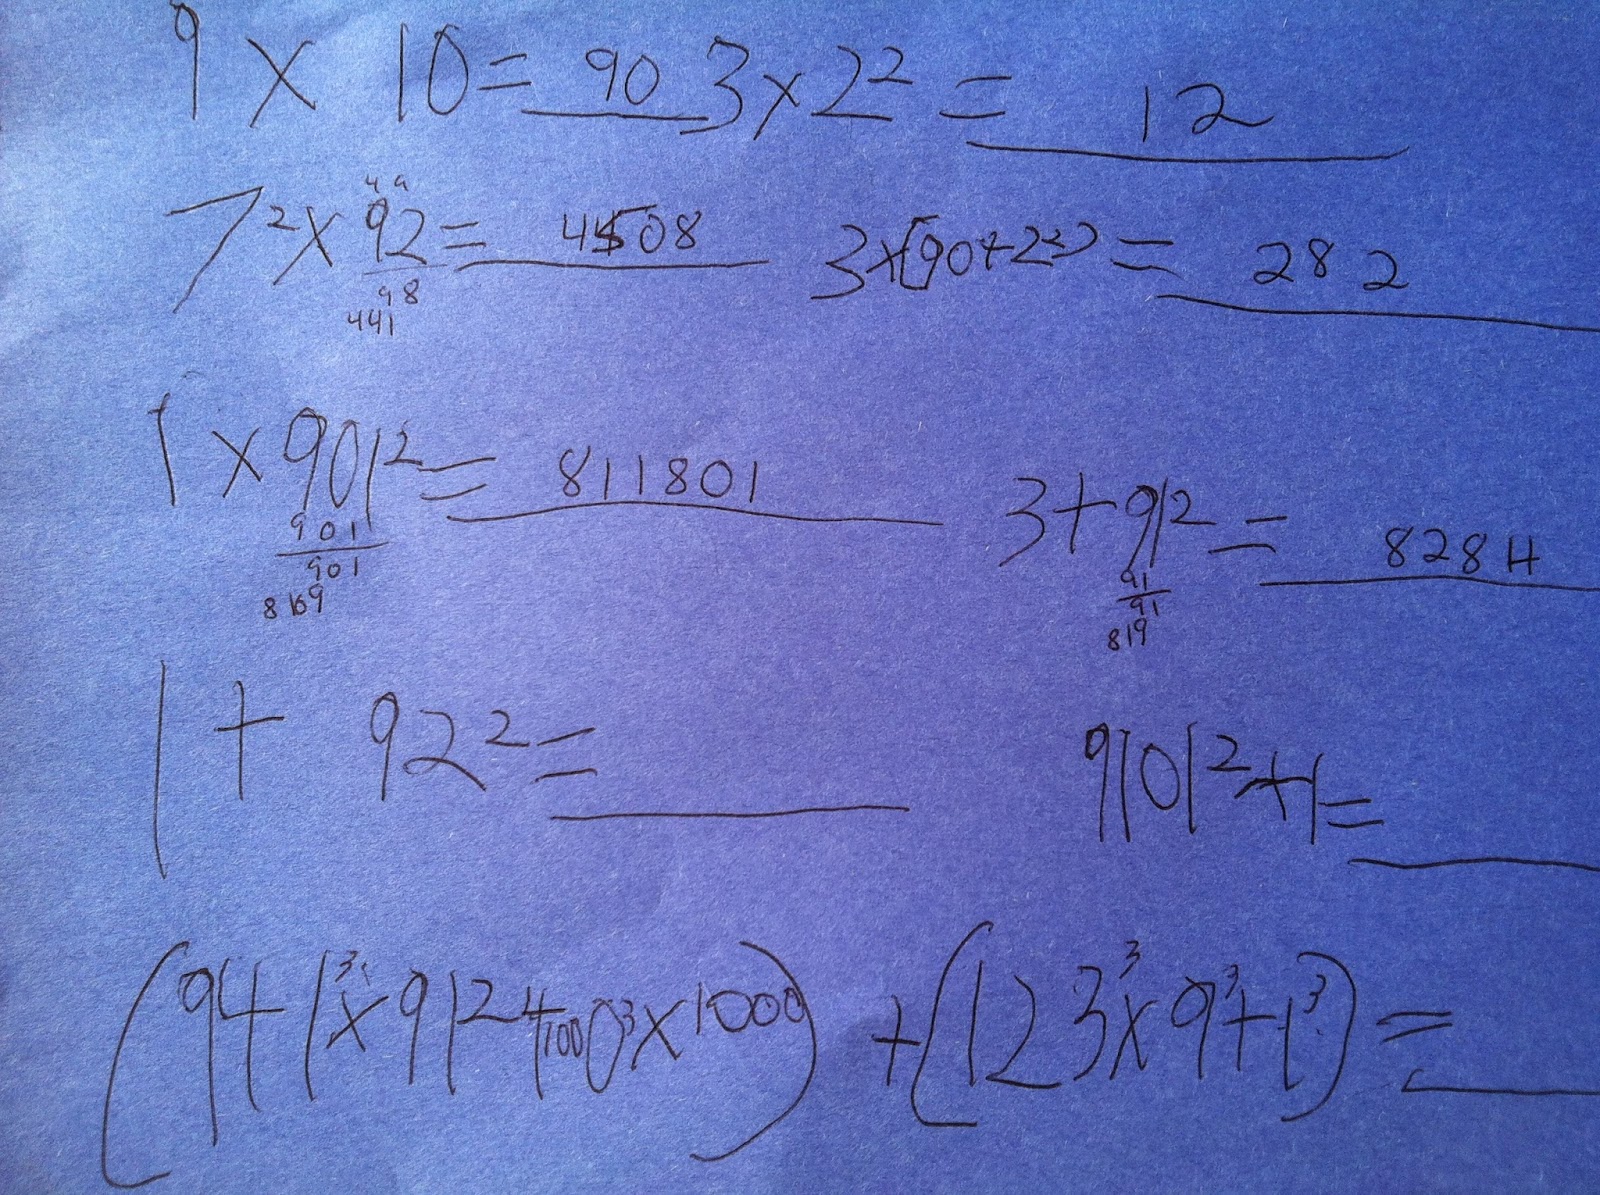 9 × 10 = 90 3 × 2² = 12
4 9
7² × 92 = 4508 3 × (90 + 2²) = 282
98
441
1 × 901² = 811801 3 + 91² = 8284
901 91
901 91
8109 819
1 + 92² = 9101² + 1 =
(94 + 1³ × 91² + 1000³ × 1000) + (123³ × 9³ + 1³) =